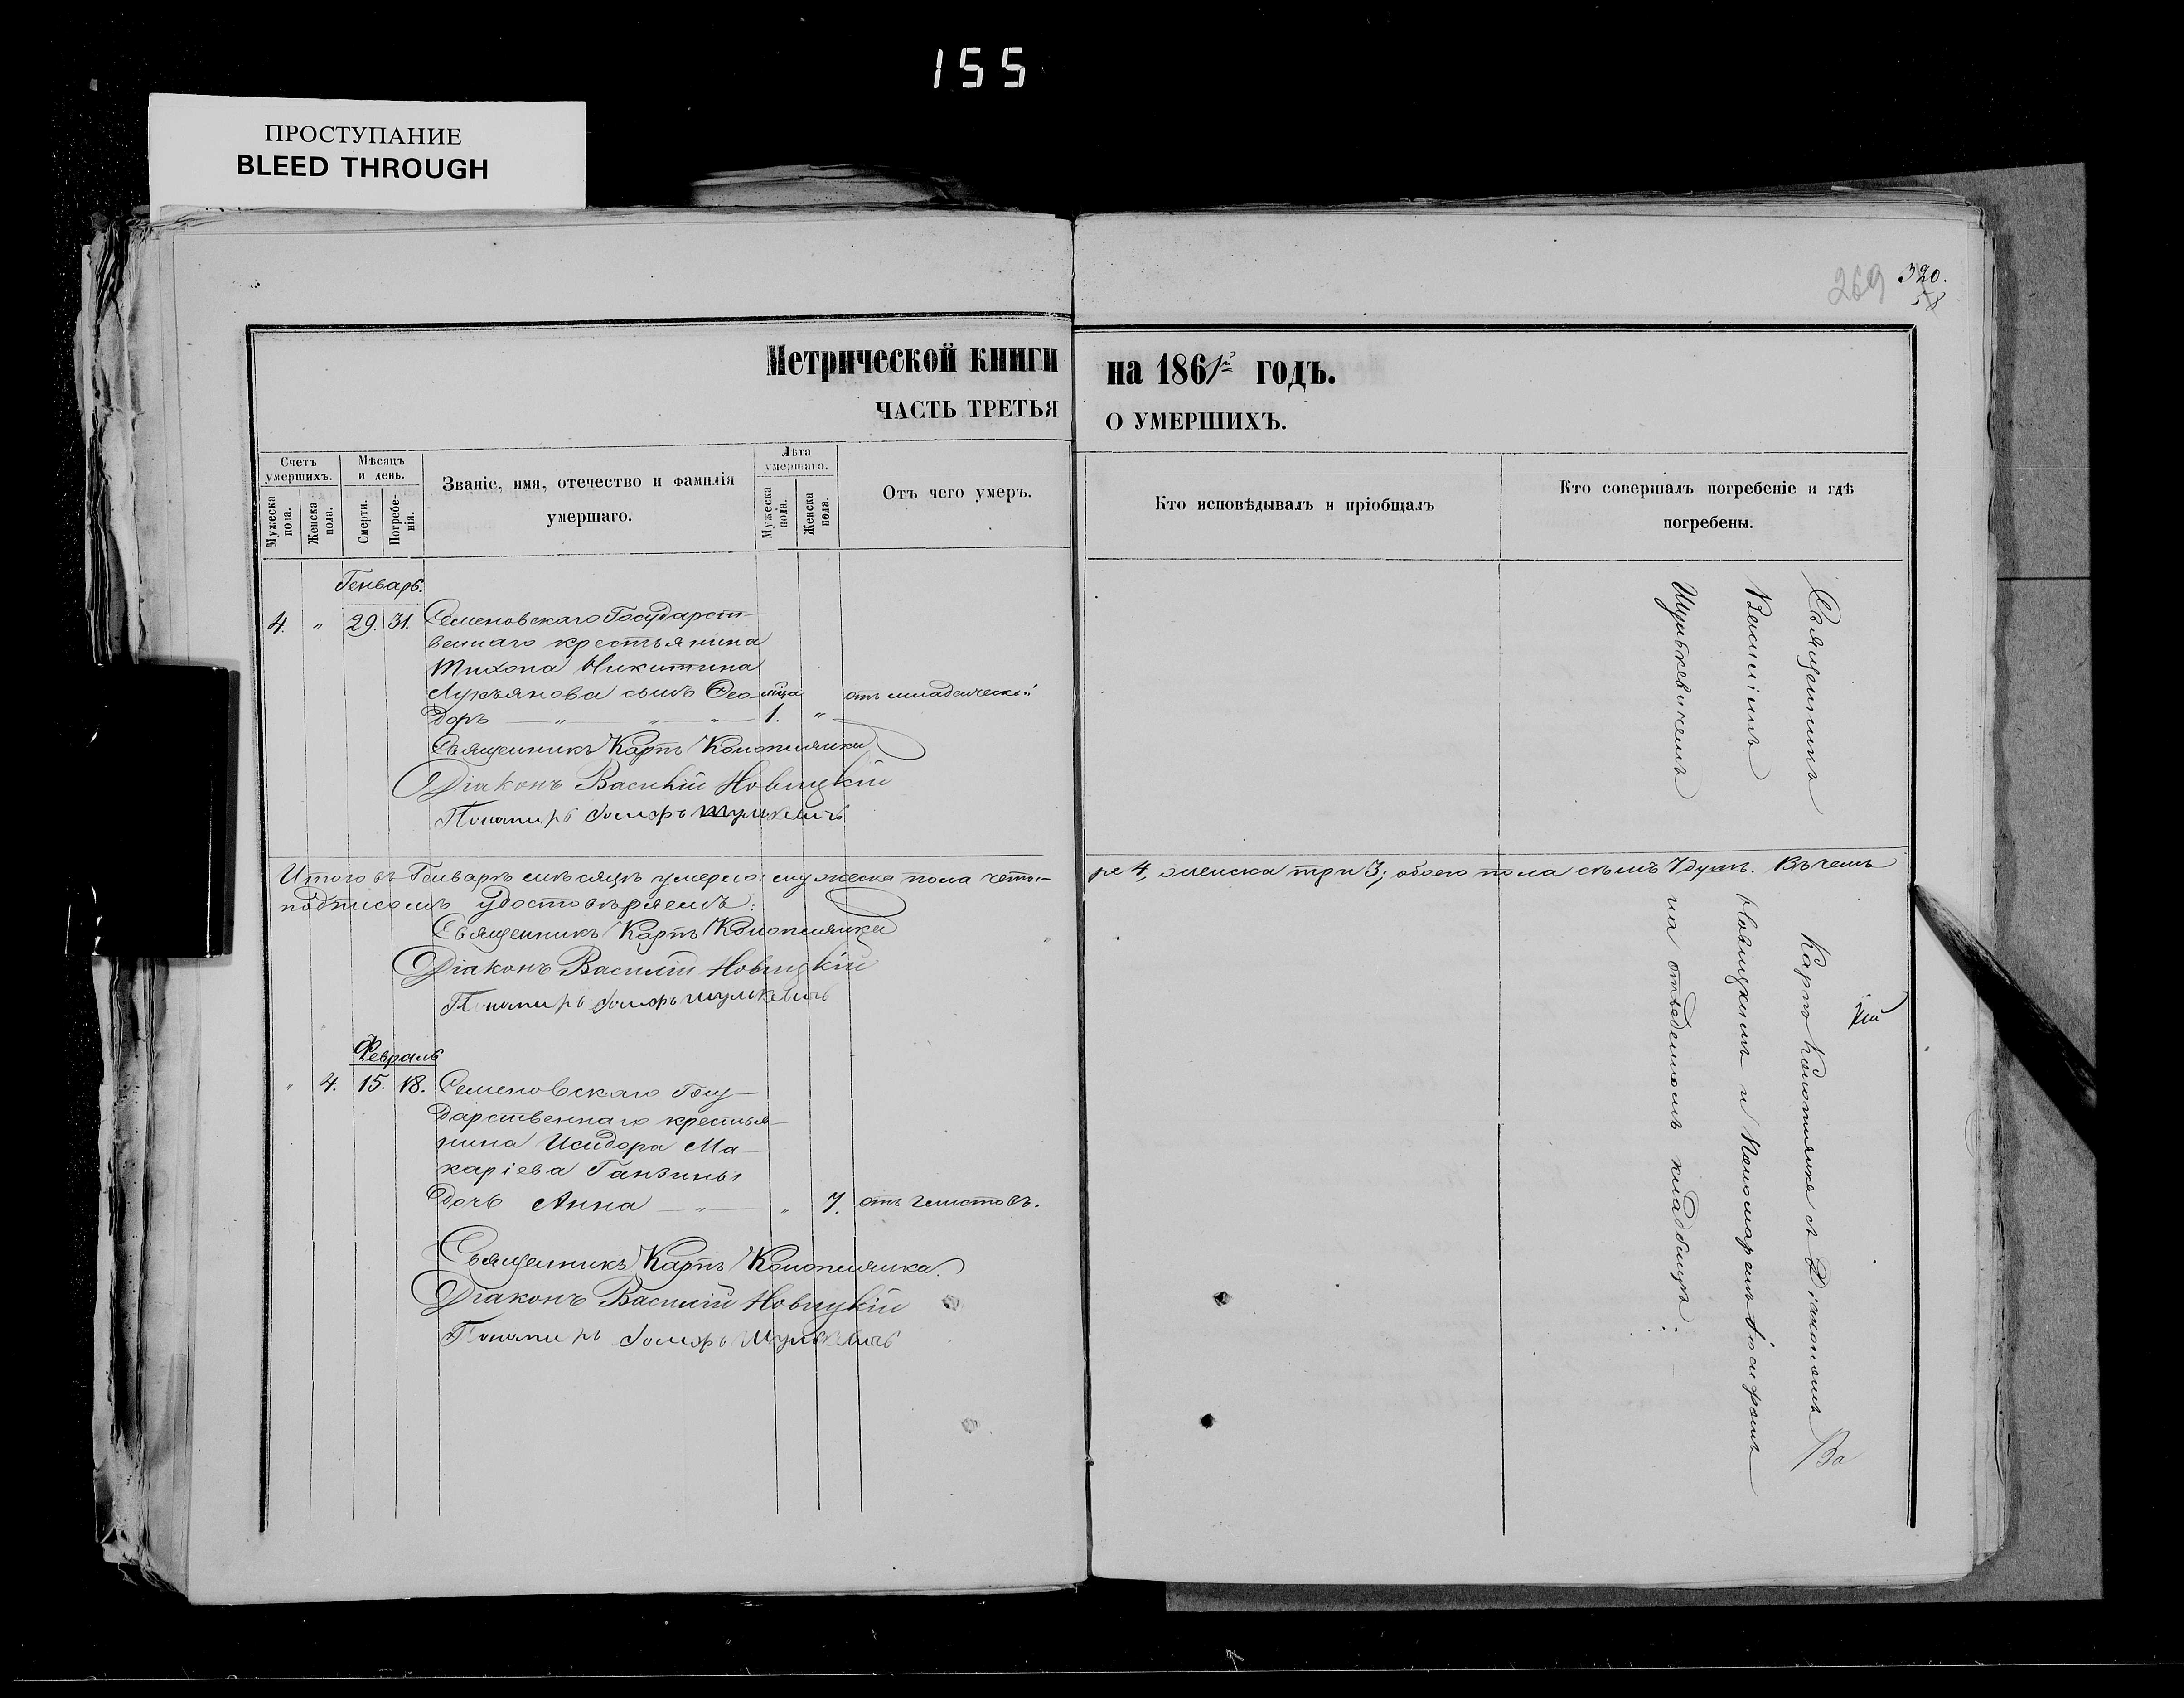 155
ПРОСТУПАНИЕ
BLEED THROUGH
269 320.
58
Метрической книги на 1861й годъ.
ЧАСТЬ ТРЕТЬЯ О УМЕРШИХЪ.
Счетъ умершихъ.
Мужеска пола.
Женска пола.
Мѣсяцъ и день.
Смерти.
Погребенія.
Званіе, имя, отечество и фамилія умершаго.
Лѣта умершаго.
Мужеска пола.
Женска пола.
Отъ чего умеръ.
Кто исповѣдывалъ и пріобщалъ
Кто совершалъ погребеніе и гдѣ погребены.
Генварь.
4. " 29. 31. Семеновскаго Государст-
веннаго крестьянина
Тихона Никитина
Лукъянова сынъ Фео- мѣца отъ младенческой
доръ — " — " — " — 1. "
Священникъ Карпъ Конопляика
Діаконъ Василій Новицкій
Пономарь Іосифъ Шулькевичъ
Итого въ Генварѣ мѣсяцѣ умерло: мужеска пола четы-
ре 4, женска три 3; обоего пола семь 7 душъ. Въ чемъ
подписомъ удостовѣряемъ:
Священникъ Карпъ Конопляика
Діаконъ Василій Новицкій
Пономарь Іосифъ Шулькевичъ
Февраль
" 4. 15. 18. Семеновскаго Госу-
дарственнаго крестья-
нина Исидора Ма-
каріева Ганзины
дочь Анна — " — " 7. отъ глистовъ.
Священникъ Карпъ Конопляика.
Діаконъ Василій Новицкій
Пономарь Іосифъ Шулькевичъ
Священникъ Карпъ Конопляика съ Діакономъ Ва
Новицкимъ и Пономаремъ Іосифомъ
Шулькевичемъ на отведенномъ кладбищѣ: